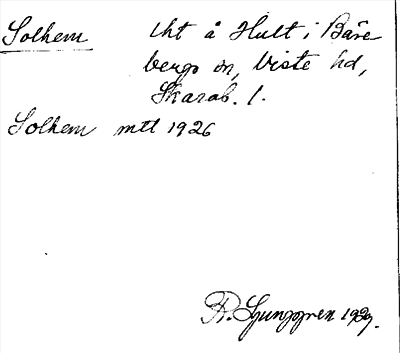 Solhem lht å Hult i Båre
bergs sn, Viste hd,
Skarab. l.
Solhem mtl 1926
R. Ljunggren 1929.